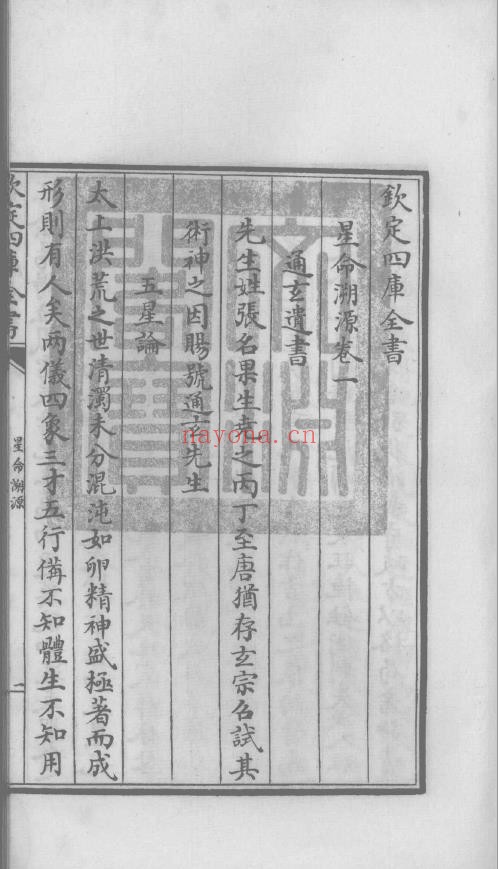 欽定四庫全書
星命溯源卷一
通玄遺書
先生姓張名果生堯之丙丁至唐猶存玄宗召試其
術神之因賜號通玄先生
五星論
太上洪荒之世清濁未分混沌如卵精神盛極著而成
形則有人矣兩儀四象三才五行備不知體生不知用
欽定四庫全書
星命溯源
一
nayona.cn